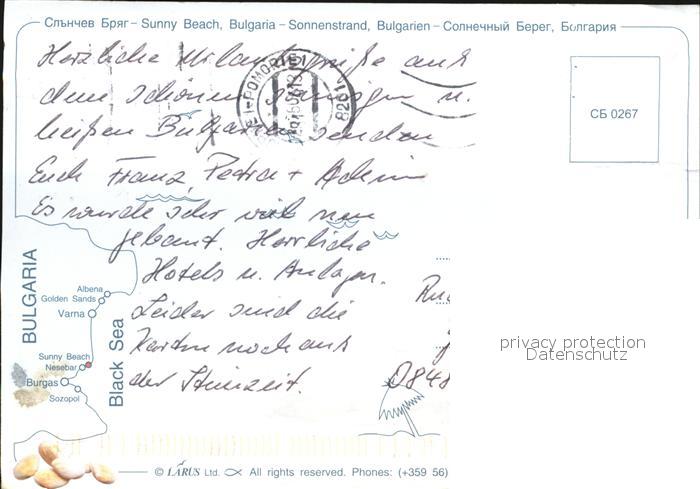 Слънчев Бряг – Sunny Beach, Bulgaria – Sonnenstrand, Bulgarien – Солнечный Берег, Болгария
Herzliche Urlaubsgrüße aus
dem schönen sonnigen u.
heißen Bulgarien senden
Euch Franz, Petra +
Es wurde sehr viel neu
gebaut. Herrliche
Hotels u. Anlagen.
Leider sind die
Karten noch aus
der Steinzeit.
POMORIE
8201
СБ 0267
BULGARIA
Black Sea
Albena
Golden Sands
Varna
Sunny Beach
Nesebar
Burgas
Sozopol
privacy protection
Datenschutz
0848
© LARUS Ltd. All rights reserved. Phones: (+359 56)